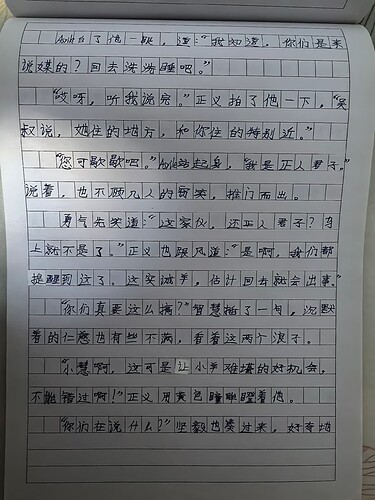 Avid白了他一眼，道：“我知道，你们是来
说媒的？回去洗洗睡吧。”
“哎呀，听我说完。”正义拍了他一下，“吴
叔说，她住的地方，和你住的特别近。”
“您可歇歇吧。”Avid站起身，“我是正人君子。”
说着，也不顾几人的哥笑，推门而出。
勇气先笑道：“这家伙，还正人君子？马
上就不是了。”正义也跟风道：“是啊，我们都
提醒到这了，这实诚手，估计回去就会出事。”
“你们真要这么搞？”智慧插了一句，沉默
着的仁慈也有些不满，看着这两个浪子。
“小慧啊，这可是让小手难堪的好机会，
不能错过啊！”正义用黄色瞳眸瞪着他。
“你们在说什么？”坚毅也凑过来，好奇地